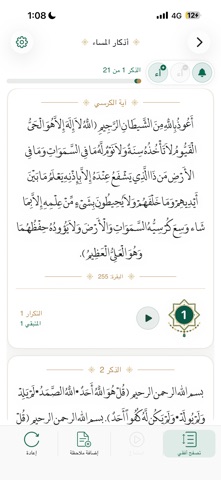 1:08
4G 12+
أذكار المساء
الذكر 1 من 21
آية الكرسي
أَعُوذُ بِاللَّهِ مِنَ الشَّيْطَانِ الرَّجِيمِ (اللَّهُ لَا إِلَهَ إِلَّا هُوَ الْحَيُّ
الْقَيُّومُ لَا تَأْخُذُهُ سِنَةٌ وَلَا نَوْمٌ لَهُ مَا فِي السَّمَوَاتِ وَمَا فِي
الْأَرْضِ مَنْ ذَا الَّذِي يَشْفَعُ عِنْدَهُ إِلَّا بِإِذْنِهِ يَعْلَمُ مَا بَيْنَ
أَيْدِيهِمْ وَمَا خَلْفَهُمْ وَلَا يُحِيطُونَ بِشَيْءٍ مِنْ عِلْمِهِ إِلَّا بِمَا
شَاءَ وَسِعَ كُرْسِيُّهُ السَّمَوَاتِ وَالْأَرْضَ وَلَا يَؤُودُهُ حِفْظُهُمَا
وَهُوَ الْعَلِيُّ الْعَظِيمُ).
البقرة: 255
1
التكرار 1
المتبقي 1
الذكر 2
بسم الله الرحمن الرحيم (قُلْ هُوَ اللَّهُ أَحَدٌ • اللَّهُ الصَّمَدُ • لَمْ يَلِدْ
وَلَمْ يُولَدْ • وَلَمْ يَكُنْ لَهُ كُفُوًا أَحَدٌ). بسم الله الرحمن الرحيم (قُلْ
تصفح أفقي
إضافة ملاحظة
إعادة